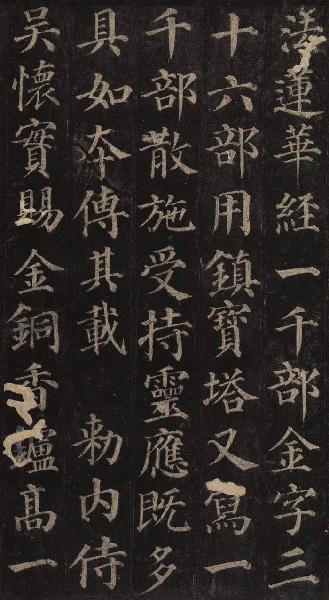 法蓮華経一千部金字三
十六部用鎮寶塔又寫一
千部散施受持靈應既多
具如本傳其載 勑内侍
吳懷實賜金銅香鑪高一